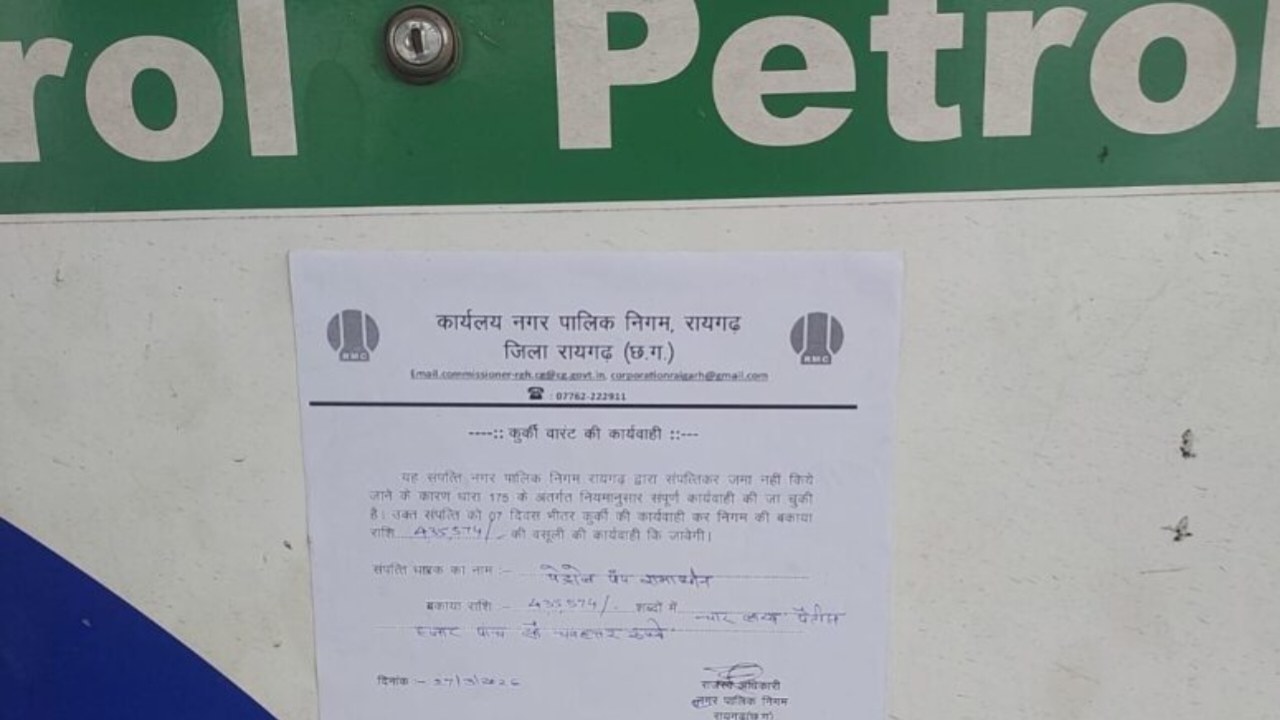 rol Petrol
कार्यलय नगर पालिक निगम, रायगढ़
जिला रायगढ़ (छ.ग.)
RMC RMC
Email.commissioner-rgh.cg@cg.govt.in, corporationraigarh@gmail.com
☎ : 07762-222911
----:: कुर्की वारंट की कार्यवाही ::---
यह संपत्ति नगर पालिक निगम रायगढ़ द्वारा संपत्तिकर जमा नहीं किये
जाने के कारण धारा 175 के अंतर्गत नियमानुसार संपूर्ण कार्यवाही की जा चुकी
है। उक्त संपत्ति को 07 दिवस भीतर कुर्की की कार्यवाही कर निगम की बकाया
राशि 435574/- की वसूली की कार्यवाही कि जावेगी।
संपत्ति धारक का नाम :- पेट्रोल पंप
बकाया राशि :- 435574/- शब्दों में चार लाख पैंतीस
हजार पांच सौ चवहत्तर रूपये
दिनांक :- 27/3/2026
राजस्व अधिकारी
नगर पालिक निगम
रायगढ़(छ.ग)